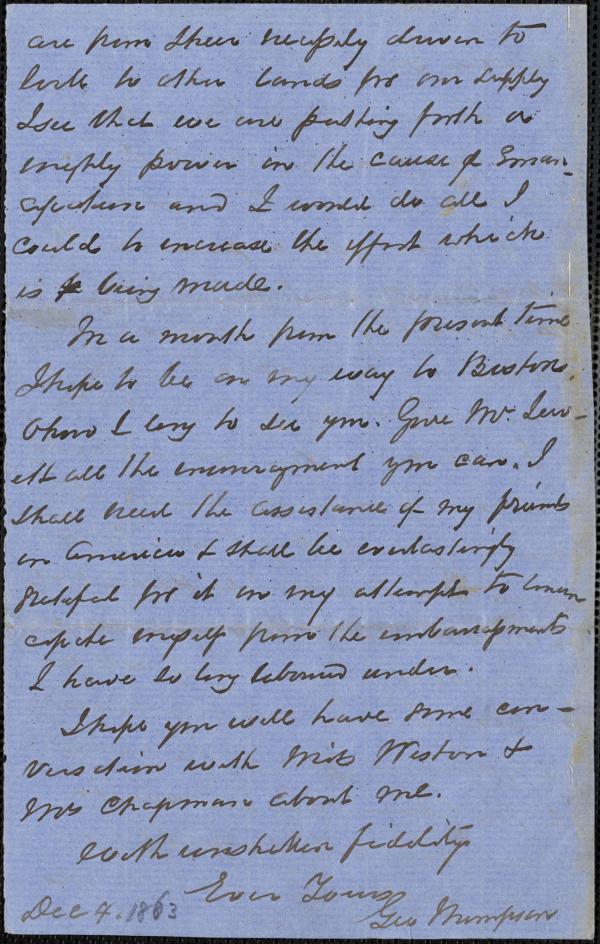 are from sheer necessity driven to
look to other lands for our supply
I see that we are putting forth a
mighty power in the cause of Eman-
cipation and I would do all I
could to increase the effort which
is being made.
In a month from the present time
I hope to be on my way to Boston.
Oh how I long to see you. Give Mr.
ett all the encouragement you can. I
shall need the assistance of my friends
in America & shall be everlastingly
grateful for it in my attempt to eman
cipate myself from the embarrassments
I have so long laboured under.
I hope you will have some con-
versation with Miss Weston &
Mrs Chapman about me.
With unshaken fidelity
Ever Yours
Geo Thompson
Dec 4. 1863